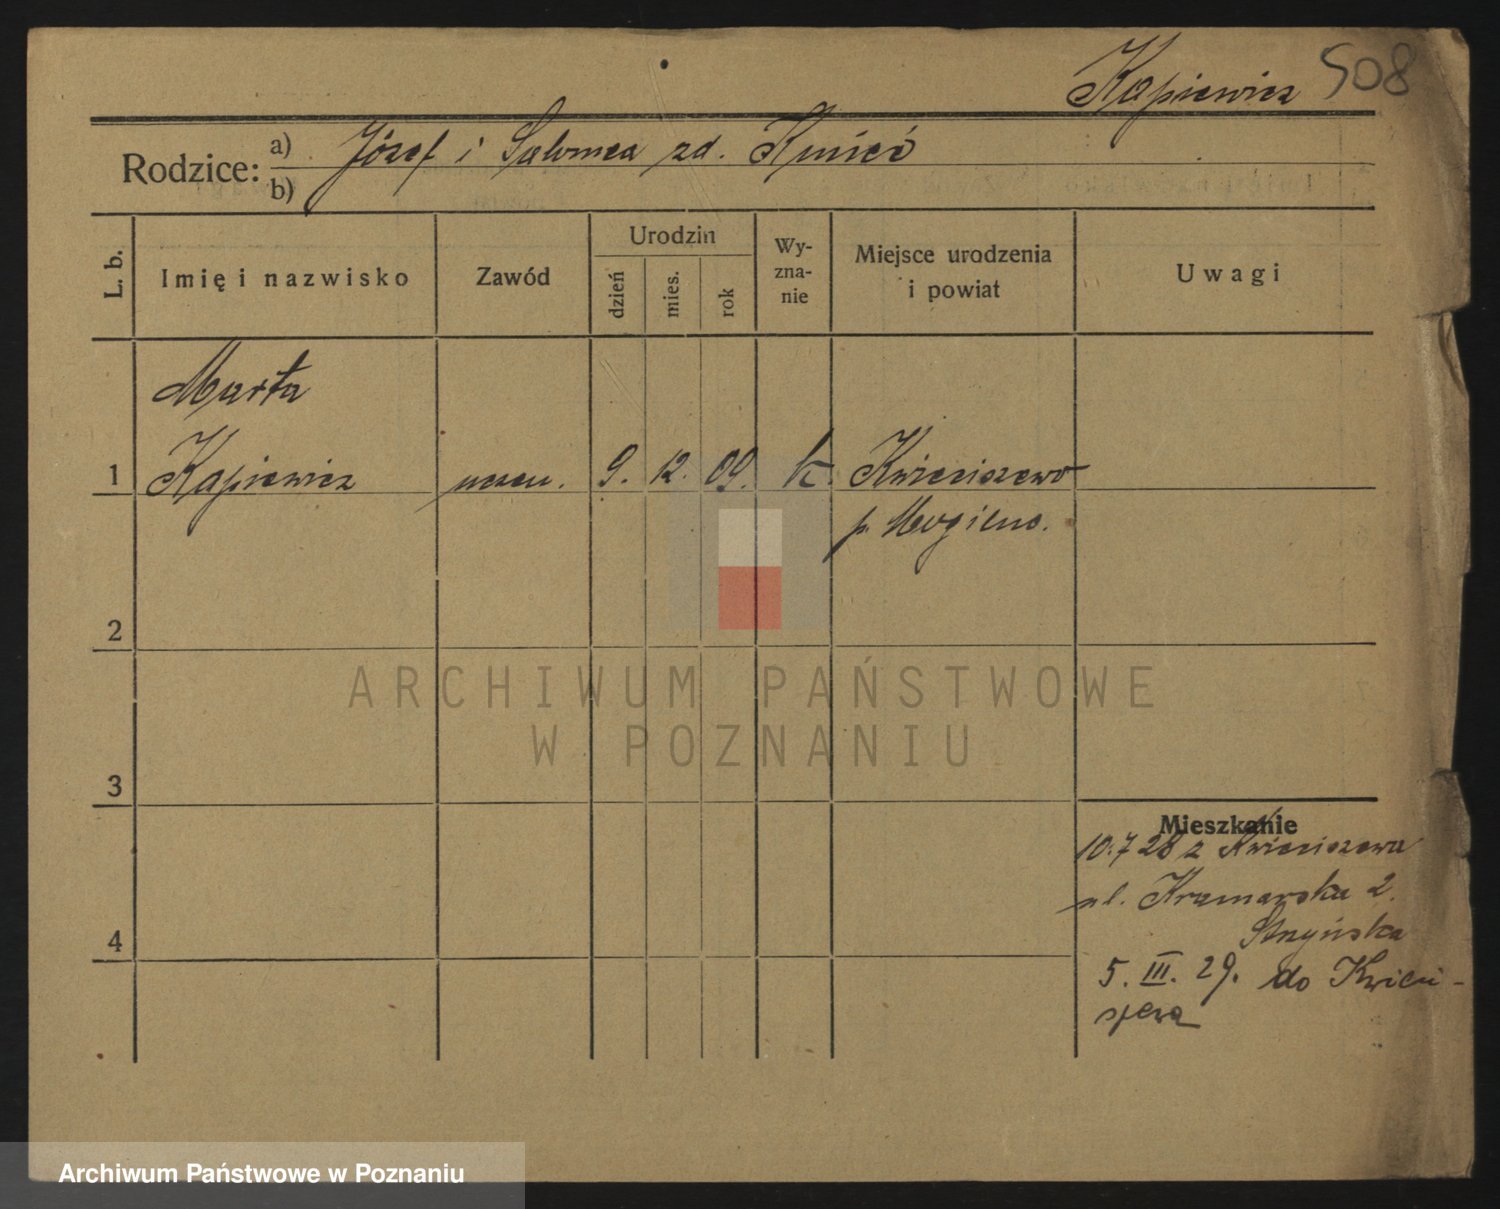 Kapiewicz 508
Rodzice: a) Józef i Salomea zd. Kmieć
b)
L. b.
Imię i nazwisko
Zawód
Urodzin
dzień
mies.
rok
Wy-
zna-
nie
Miejsce urodzenia
i powiat
Uwagi
Marta
1 Kapiewicz uczen. 9. 12. 09. k. Kwieciszewo
p. Mogilno.
2
ARCHIWUM PAŃSTWOWE
W POZNANIU
3
Mieszkanie
10.7 28 z Kwieciszewa
ul. Kramarska 2.
4
5. III. 29. do Kwieci-
szewa
Archiwum Państwowe w Poznaniu